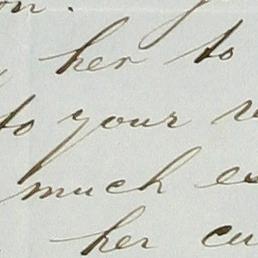 her to
to your
much
her